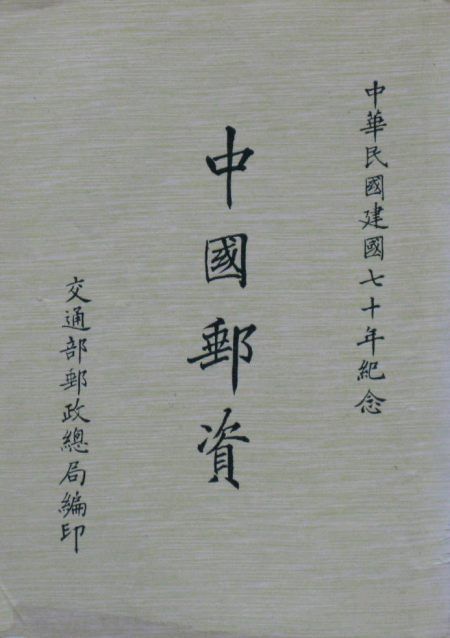 中華民國建國七十年紀念
中國郵資
交通部郵政總局編印